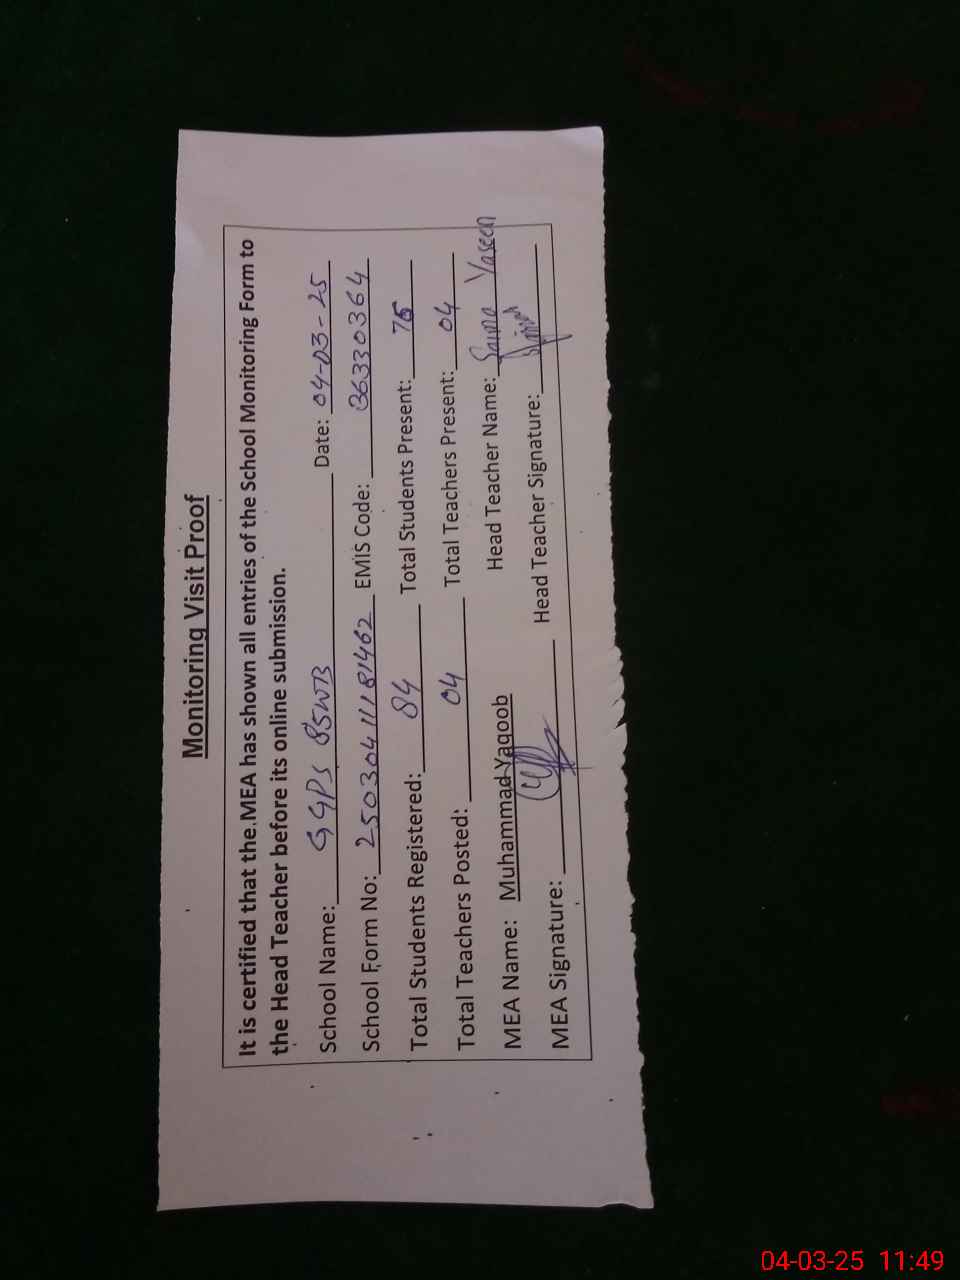 Monitoring Visit Proof
It is certified that the MEA has shown all entries of the School Monitoring Form to
the Head Teacher before its online submission.
School Name: GGPS 85WB Date: 04-03-25
School Form No: 25030411181462 EMIS Code: 36330364
Total Students Registered: 84 Total Students Present:
Total Teachers Posted: 04 Total Teachers Present: 04
MEA Name: Muhammad Yaqoob Head Teacher Name: Saima Yaseen
MEA Signature: Head Teacher Signature:
04-03-25 11:49